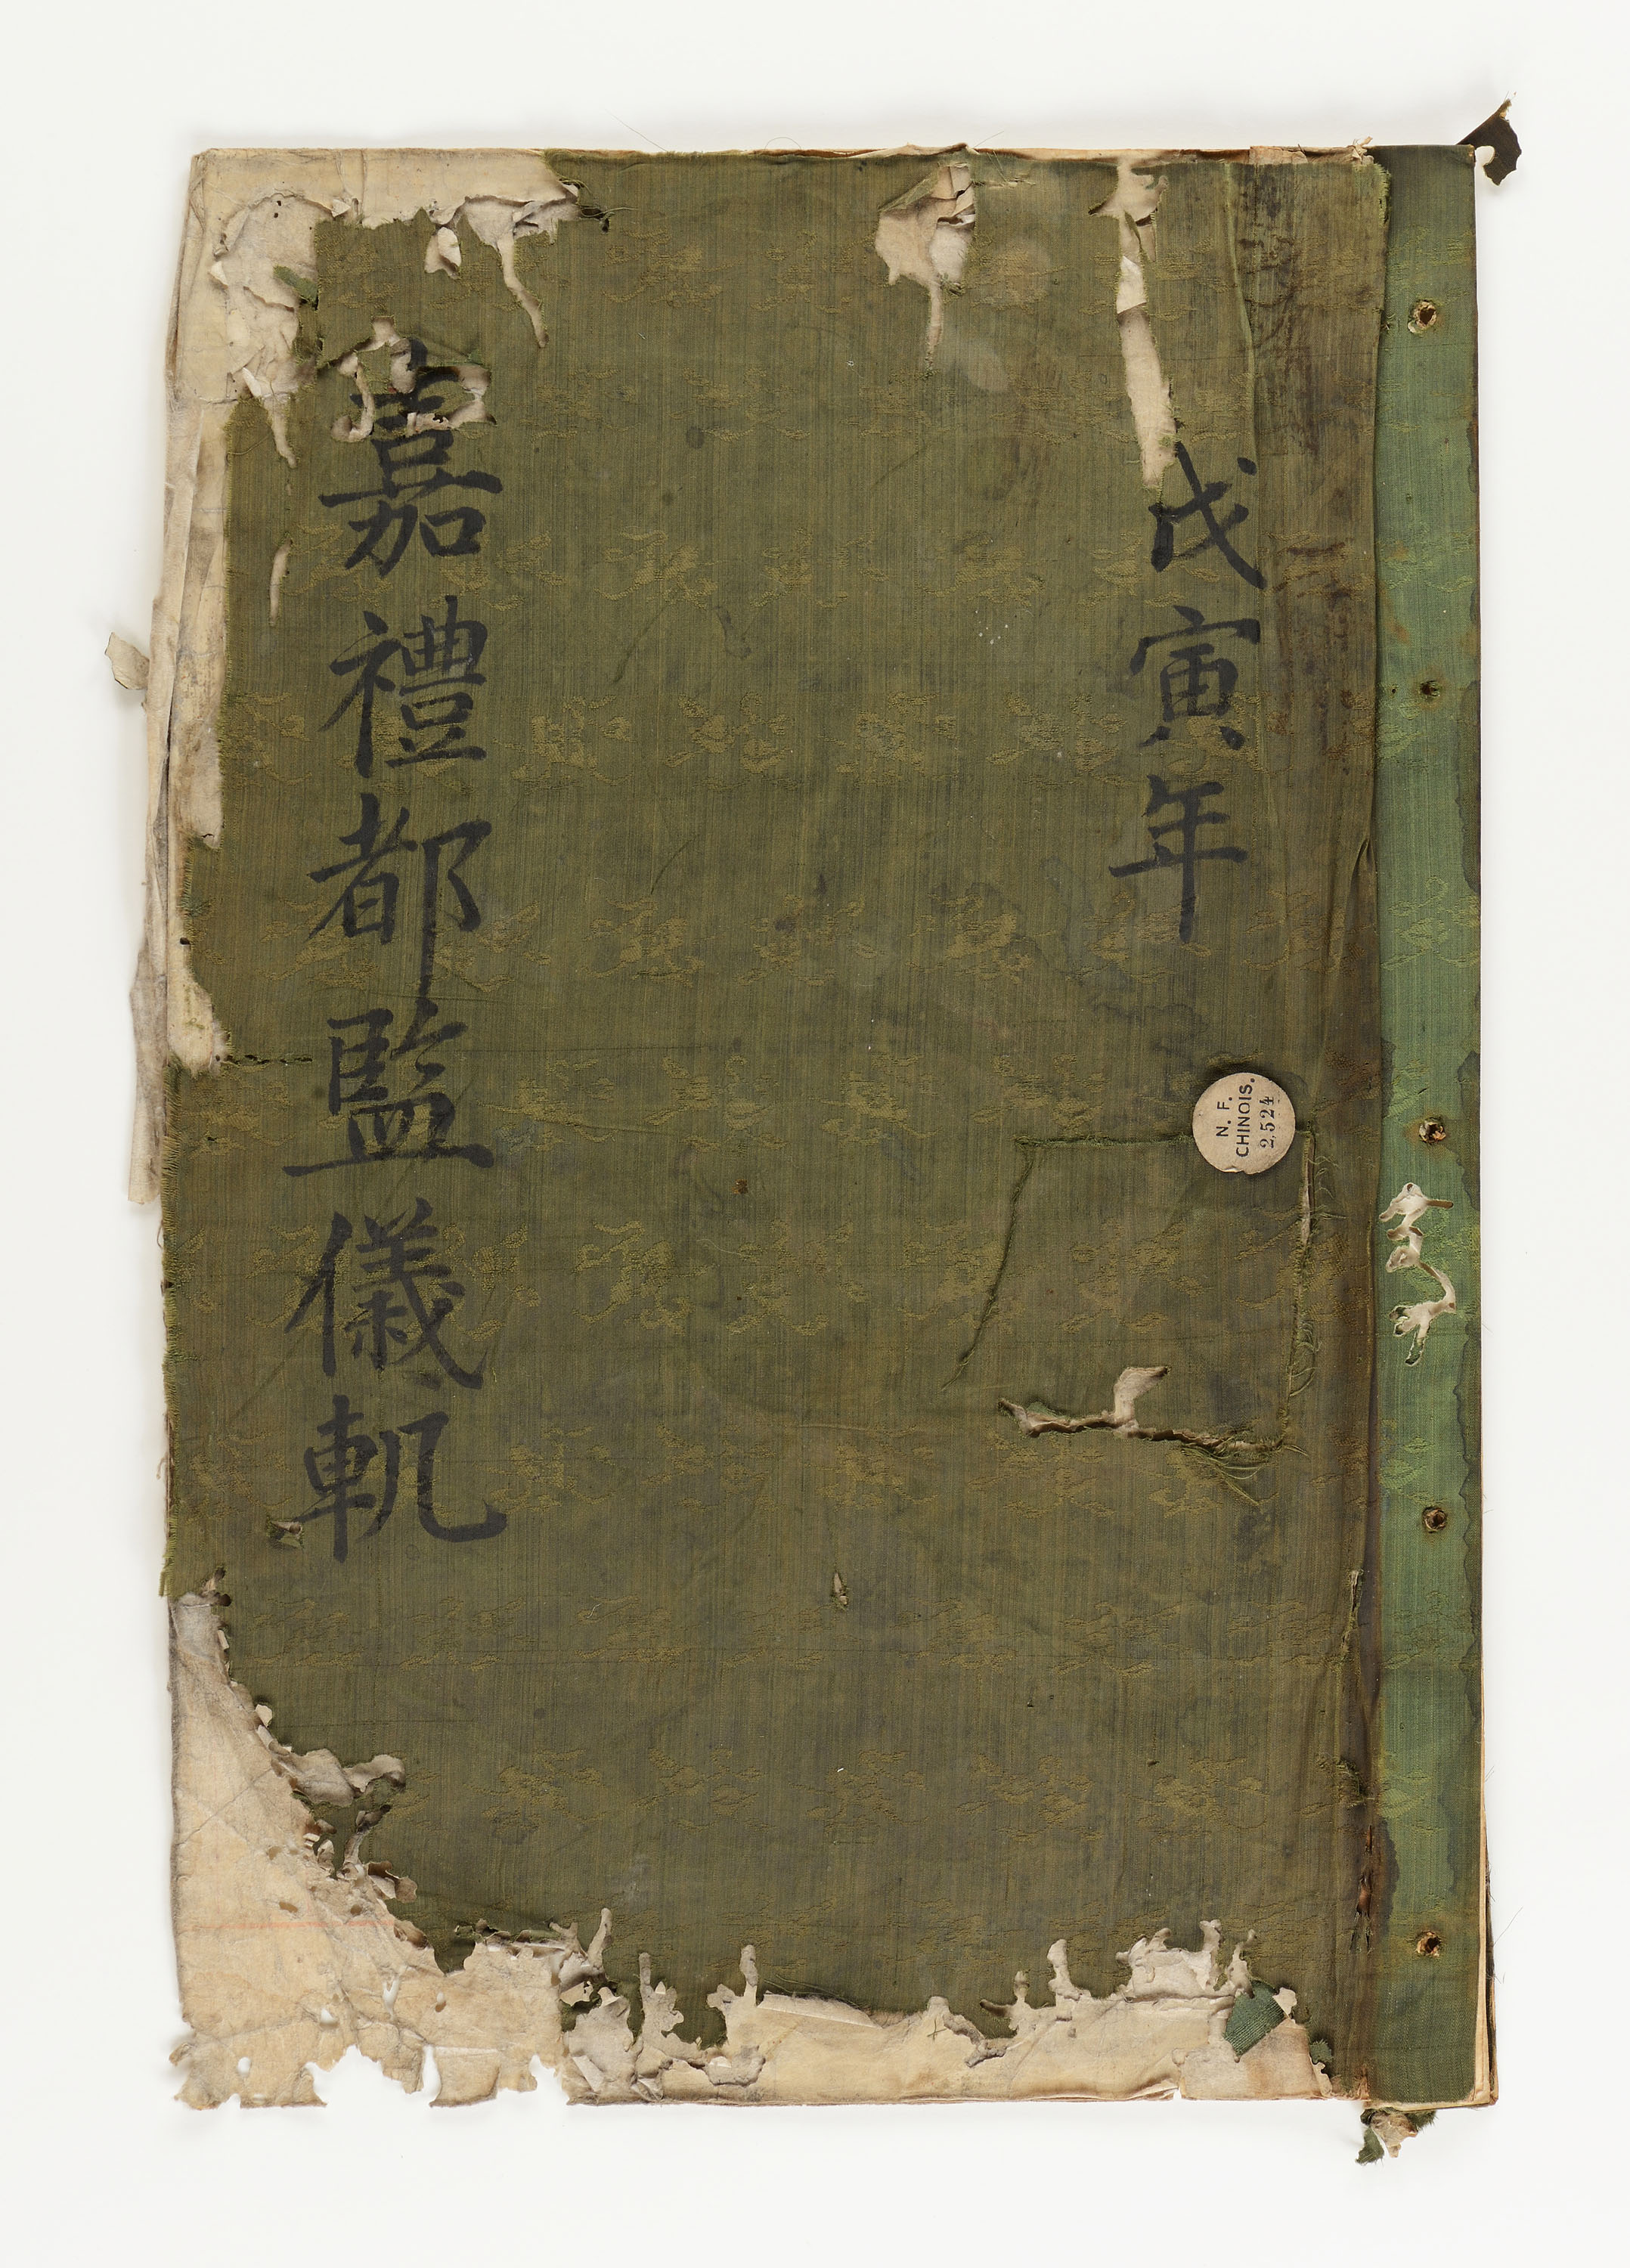 戊寅年
嘉禮都監儀軌
N. F.
CHINOIS.
2524